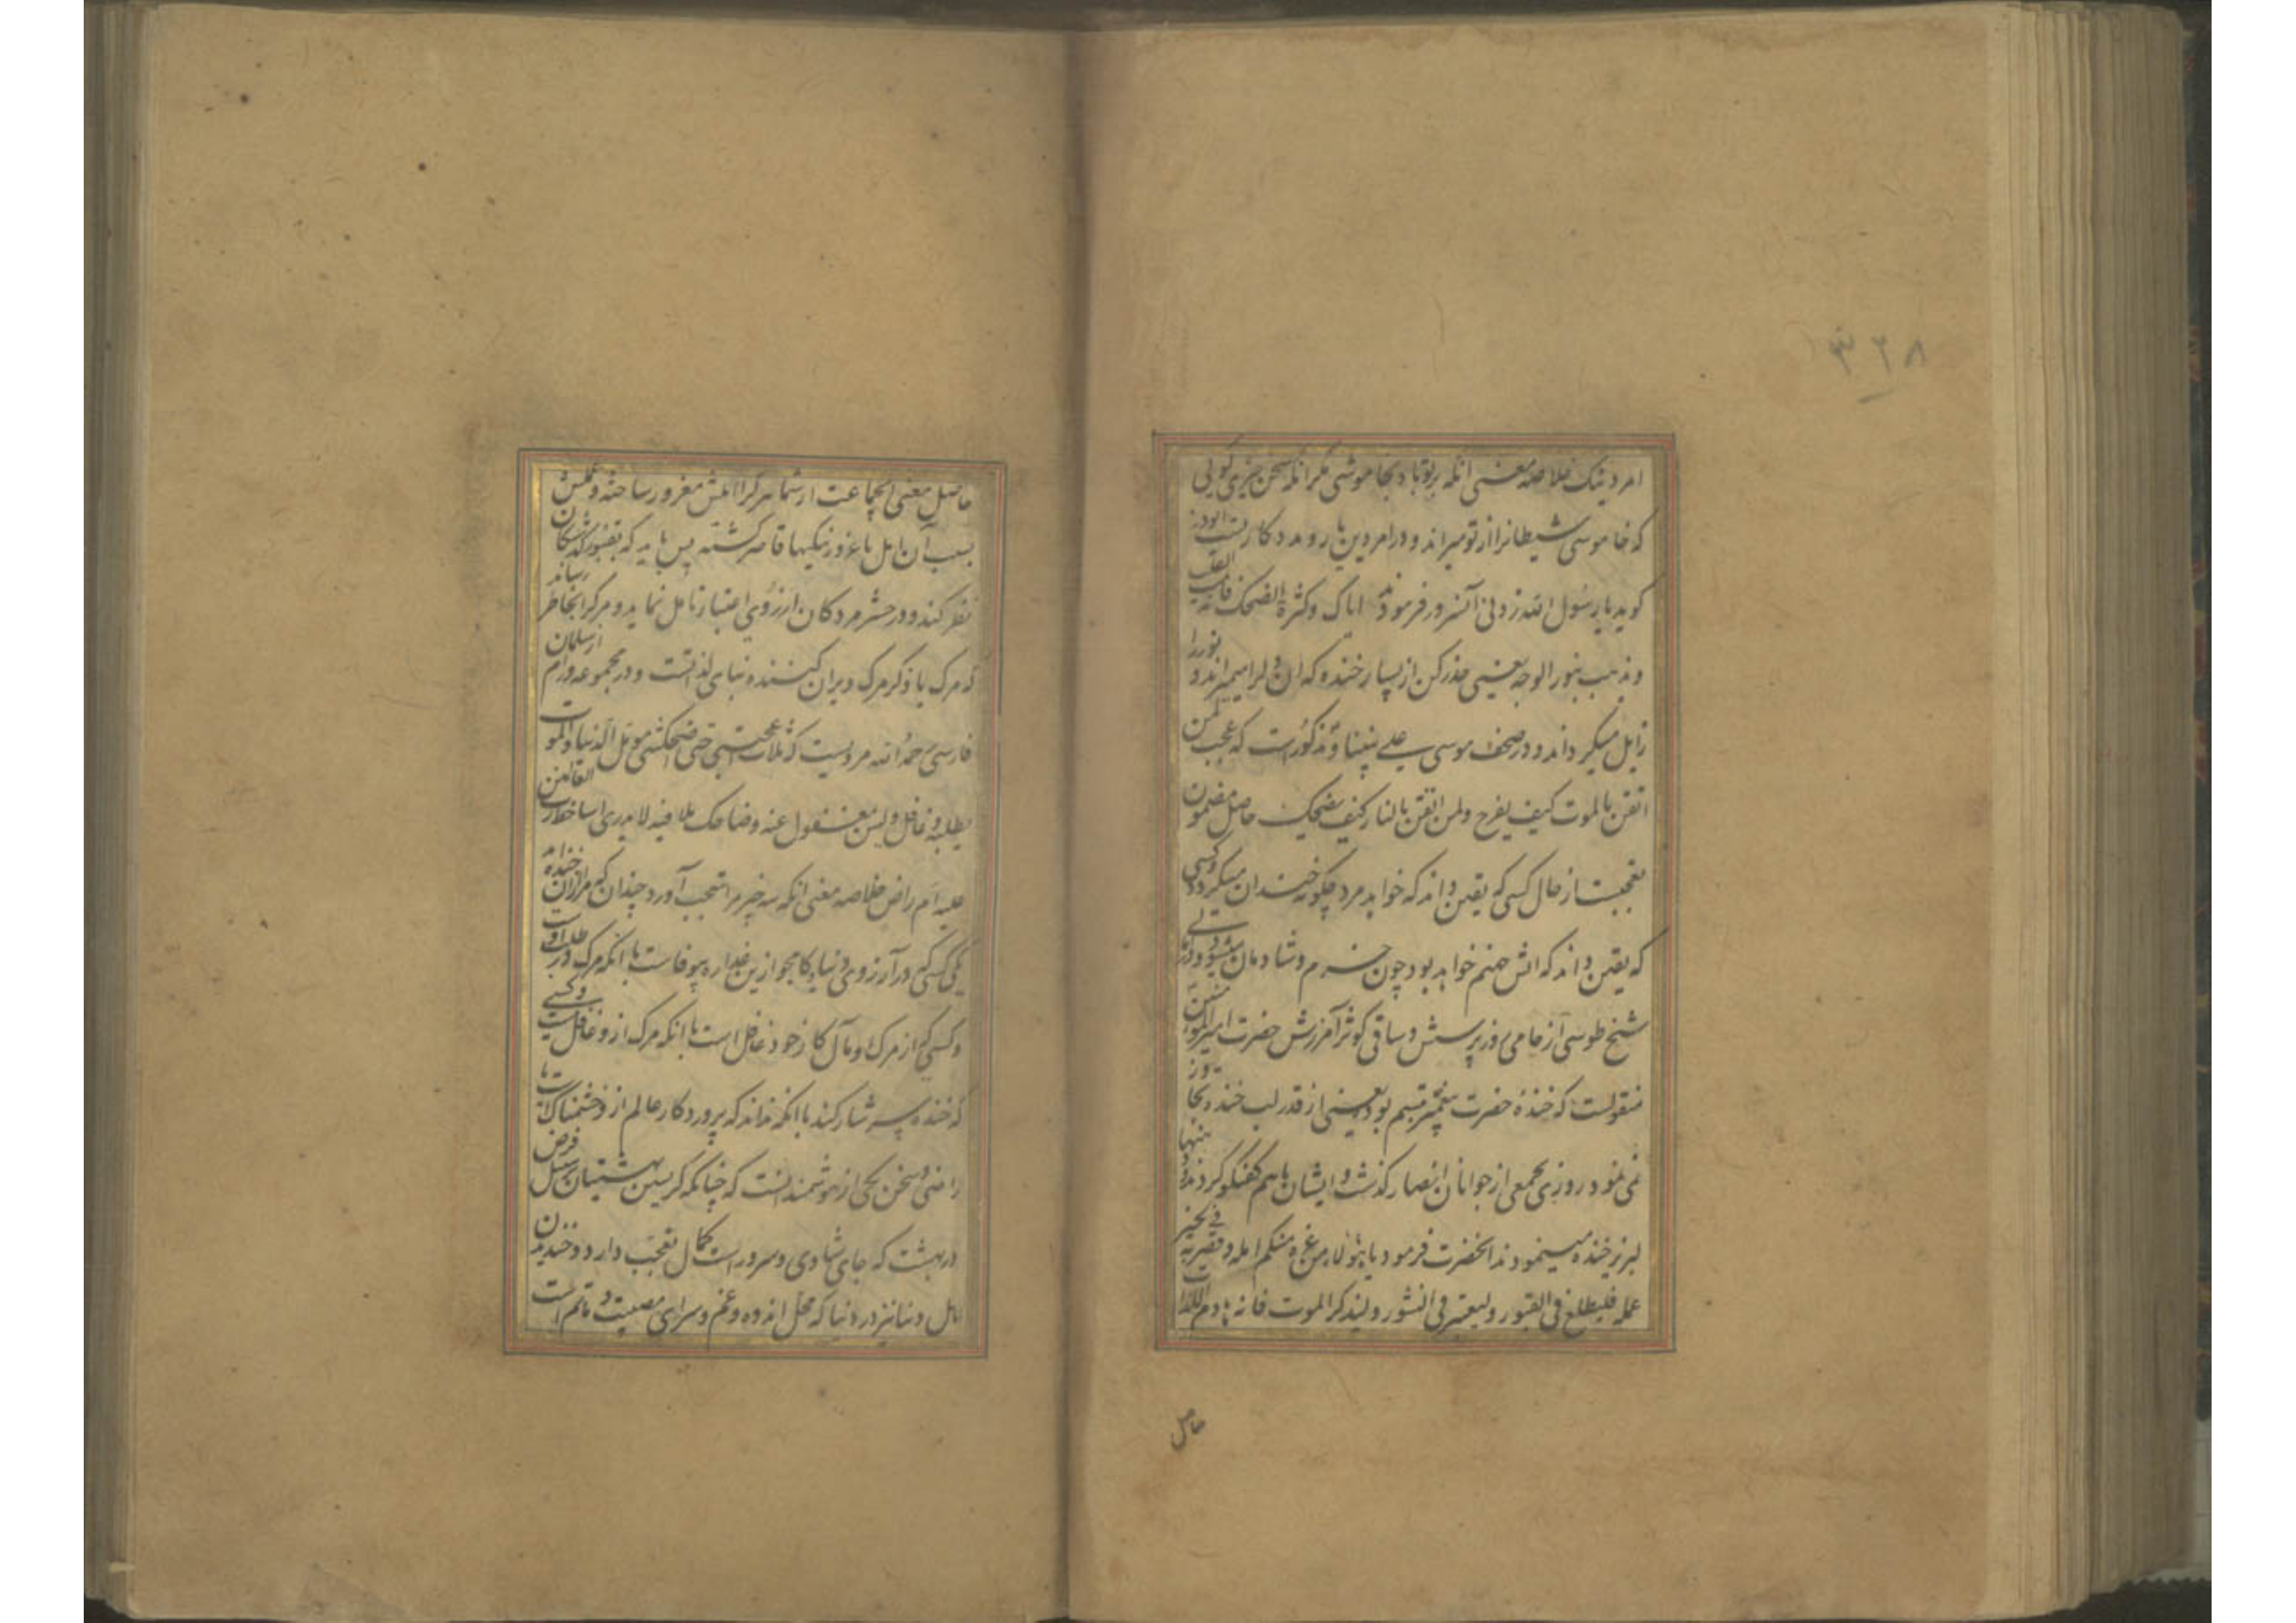 ۳۲۸
امر دینک خلاصه معنی انکه بر تو باد بخاموشی مکر انکه سخن خیری کویی
که خاموشی شیطانرا از تو میراند و در امر دین یار و مددکار تست ابوذر
کوید یا رسول الله زدنی آنسرور فرمودند ایاک و کثرة الضحک فانه یمیت القلب
و یذهب بنور الوجه یعنی حذر کن از بسیار خنده که آن دلرا میمیراند و نور را
زایل میکرداند و در صحف موسی علی نبینا و مذکور است که عجب لمن
اتقن بالموت کیف یفرح و لمن اتقن بالنار کیف یضحک حاصل مضمون
تعجبست از حال کسی که یقین داند که خواهد مرد چکونه خندان میکردد و کسی
که یقین داند که اتش جهنم خواهد بود چون خرم و شادمان میشود و در
شیخ طوسی از حامی روز پرسش و ساقی کوثر آمرزش حضرت امیرالمؤمنین
منقولست که خندهٔ حضرت پیغمبر تبسم بود یعنی از قدر لب خنده تجاوز
نمی نمود روزی بجمعی از جوانان انصار کذشت و ایشان باهم کفتکو کردند
لبریز خنده مینمودند انحضرت فرمود یا هؤلاء من غره منکم امله و قصر به فی الخیر
عمله فلیطلع فی القبور و لیعتبر فی النشور و لیذکر الموت فانه هادم اللذات
حاصل
حاصل معنی ایجماعت از شما هر کرا املش مغرور ساخته و عملش
بسبب آن امل با غرور نیکیها قاصر کشته پس باید که بقبور کذشتکان
نظر کند و در حشر مردکان از روی اعتبار تامل نماید و مرکرا بخاطر رساند
که مرک یا ذکر مرک ویران کننده بنای لذاتست و در مجموعه ورام از سلمان
فارسی رحمه الله مرویست که ثلاث عجبتنی حتی اضحکتنی مؤمل الدنیا و الموت
یطلبه و غافل و لیس بمغفول عنه و ضاحک ملا فیه لا یدری اساخط رب العالمین
علیه ام راض خلاصه معنی انکه سه چیز مرا تعجب آورد چندان که مرا از ان خنده آمد
یکی کسی که در آرزوی دنیا و کامجو ازین غداره بیوفاست با انکه مرک در طلب اوست
و کسی که از مرک و مآل کار خود غافل است با انکه مرک از و غافل نیست و کسی
که خنده سرشار کند با انکه نداند که پروردکار عالم از و خشمناکست یا
راضی و سخن یکی از هوشمندانست که چنانکه کریستن بهشتیان بر سبیل فرض
در بهشت که جای شادی و سرور است کمال تعجب دارد و خندیدن
اهل دنیا نیز در دنیا که محل اندوه و غم و سرای مصیبت و ماتم است